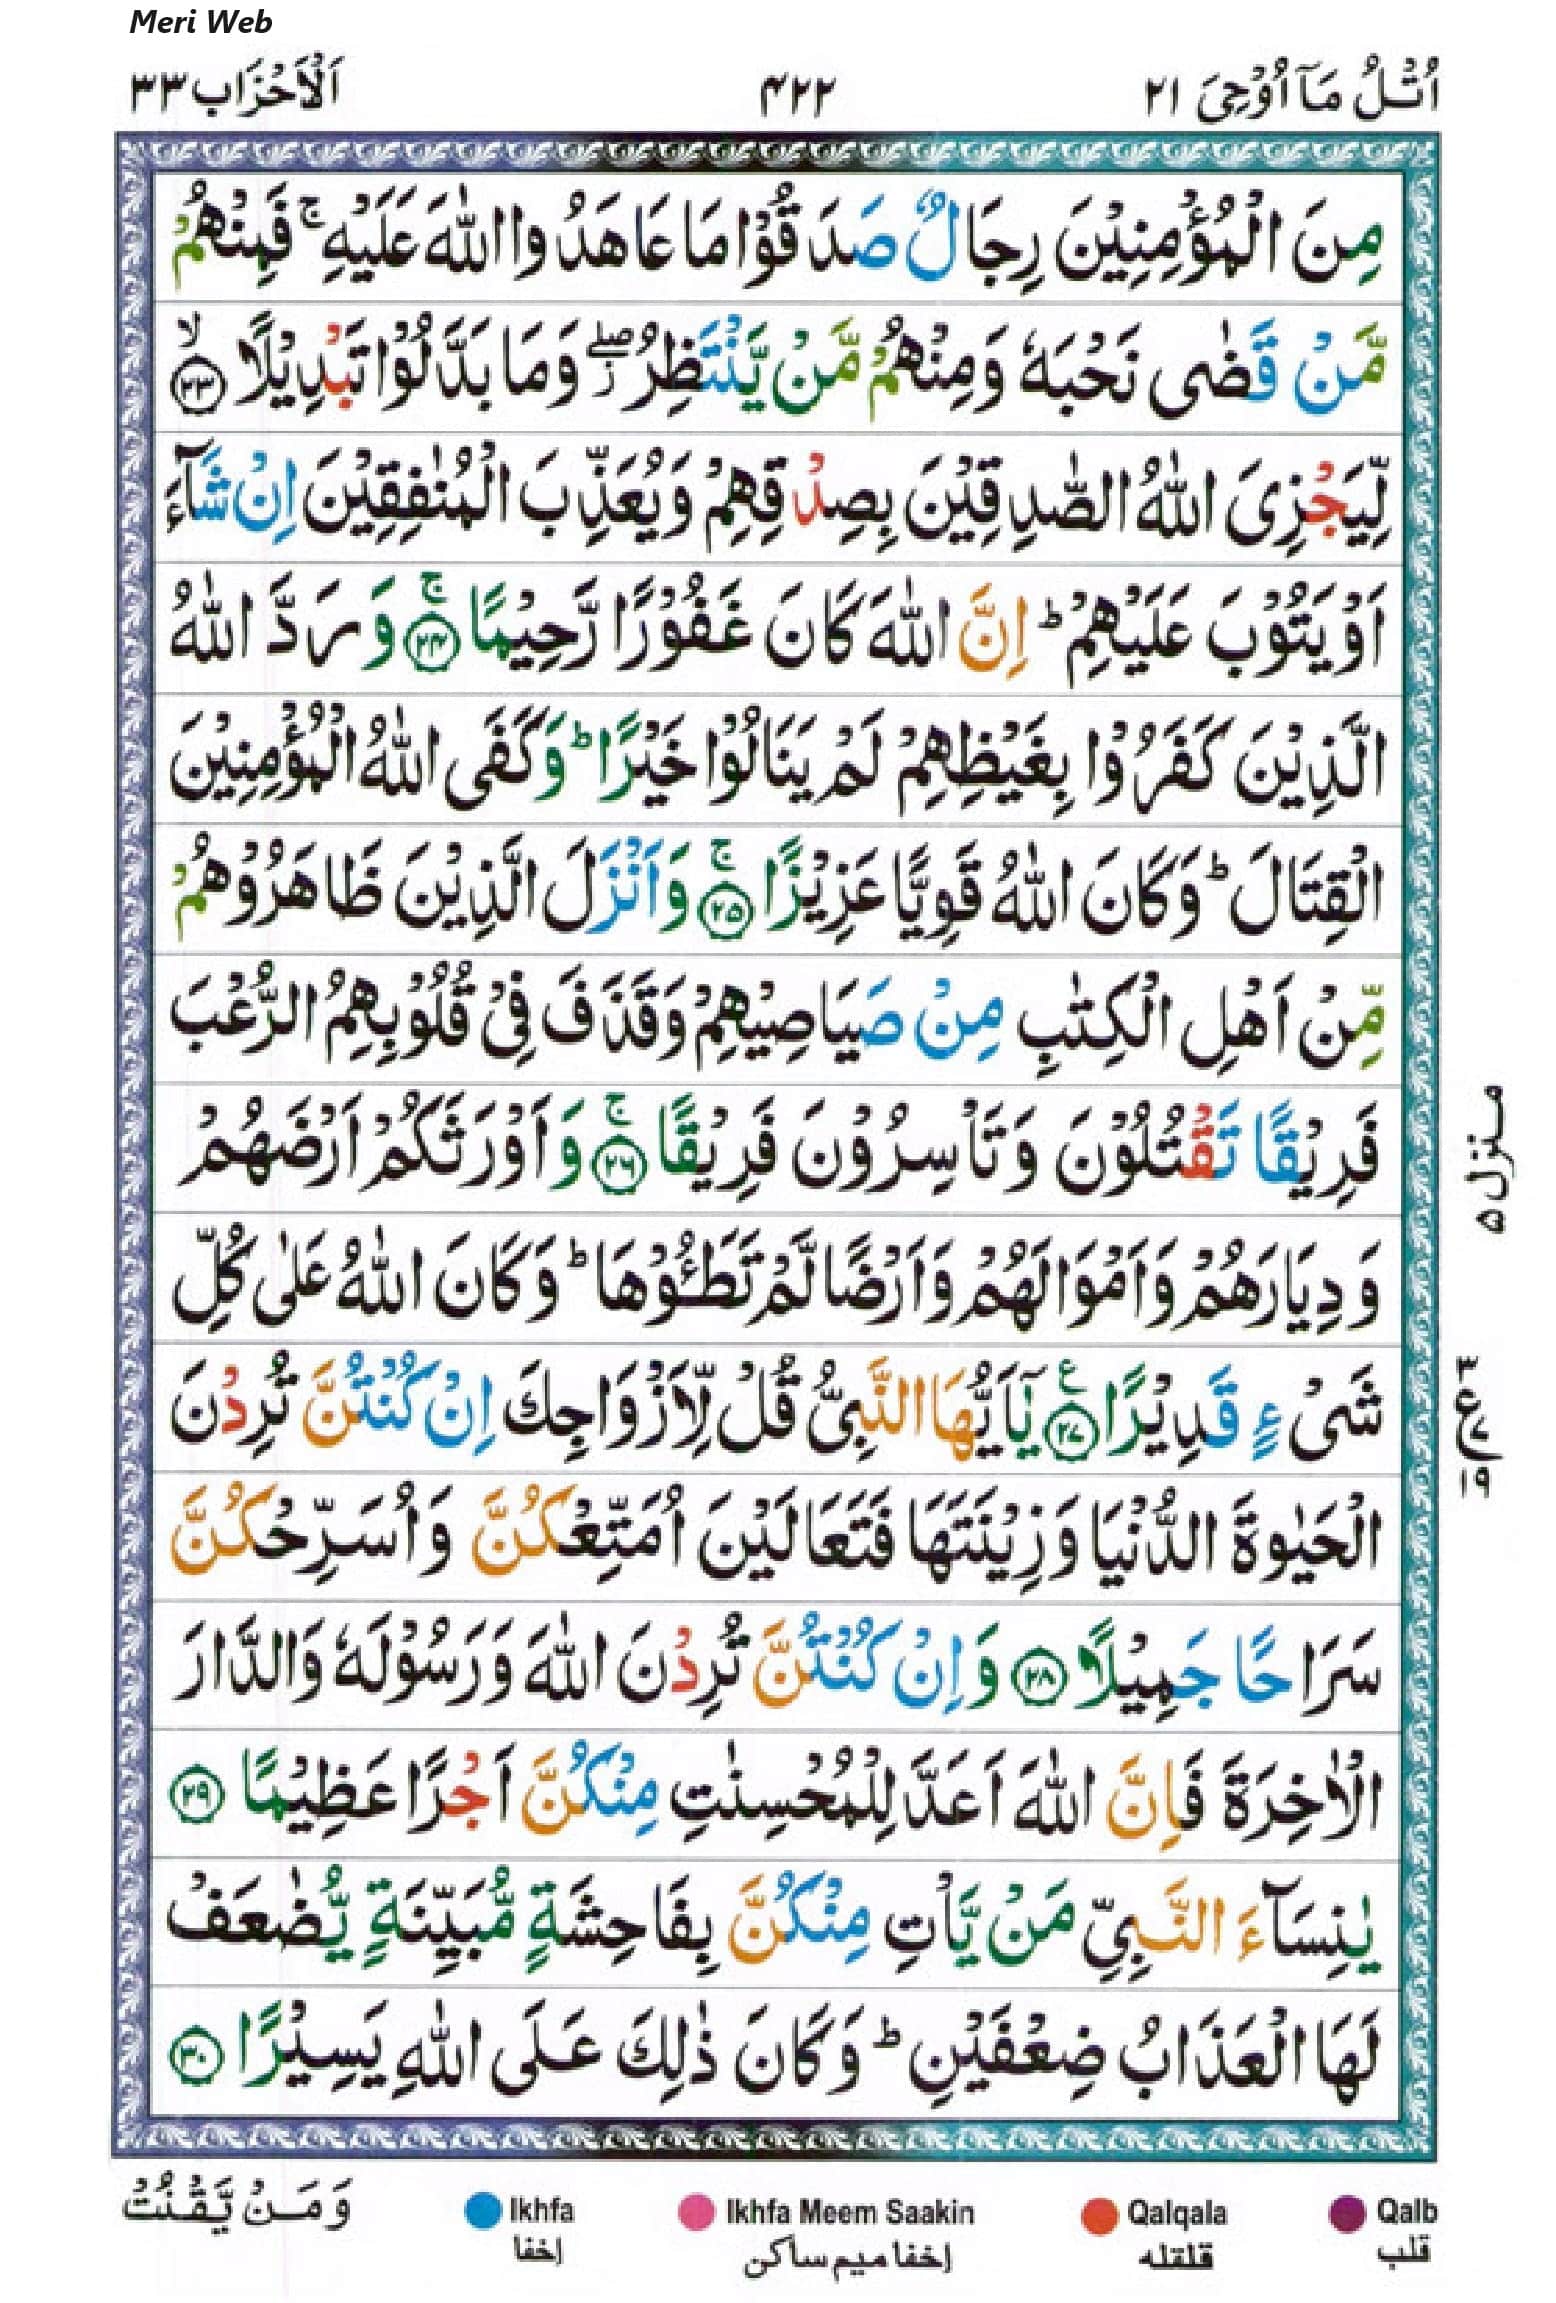 Meri Web
اُتْلُ مَآ اُوْحِیَ ۲۱
۴۲۲
اَلْاَحْزَاب ۳۳
مِنَ الْمُؤْمِنِیْنَ رِجَالٌ صَدَقُوْا مَا عَاهَدُوا اللّٰهَ عَلَیْهِ ۚ فَمِنْهُمْ
مَّنْ قَضٰى نَحْبَهٗ وَمِنْهُمْ مَّنْ یَّنْتَظِرُ ۖؗ وَمَا بَدَّلُوْا تَبْدِیْلًا ۙ۲۳
لِّیَجْزِیَ اللّٰهُ الصّٰدِقِیْنَ بِصِدْقِهِمْ وَیُعَذِّبَ الْمُنٰفِقِیْنَ اِنْ شَآءَ
اَوْ یَتُوْبَ عَلَیْهِمْ ؕ اِنَّ اللّٰهَ كَانَ غَفُوْرًا رَّحِیْمًا ۚ۲۴ وَ رَدَّ اللّٰهُ
الَّذِیْنَ كَفَرُوْا بِغَیْظِهِمْ لَمْ یَنَالُوْا خَیْرًا ؕ وَكَفَى اللّٰهُ الْمُؤْمِنِیْنَ
الْقِتَالَ ؕ وَكَانَ اللّٰهُ قَوِیًّا عَزِیْزًا ۚ۲۵ وَ اَنْزَلَ الَّذِیْنَ ظَاهَرُوْهُمْ
مِّنْ اَهْلِ الْكِتٰبِ مِنْ صَیَاصِیْهِمْ وَقَذَفَ فِیْ قُلُوْبِهِمُ الرُّعْبَ
فَرِیْقًا تَقْتُلُوْنَ وَ تَاْسِرُوْنَ فَرِیْقًا ۚ۲۶ وَ اَوْرَثَكُمْ اَرْضَهُمْ
وَ دِیَارَهُمْ وَ اَمْوَالَهُمْ وَ اَرْضًا لَّمْ تَطَـُٔوْهَا ؕ وَكَانَ اللّٰهُ عَلٰى كُلِّ
شَیْءٍ قَدِیْرًا ۧ۲۷ یٰۤاَیُّهَا النَّبِیُّ قُلْ لِّاَزْوَاجِكَ اِنْ كُنْتُنَّ تُرِدْنَ
الْحَیٰوةَ الدُّنْیَا وَ زِیْنَتَهَا فَتَعَالَیْنَ اُمَتِّعْكُنَّ وَ اُسَرِّحْكُنَّ
سَرَاحًا جَمِیْلًا ۲۸ وَ اِنْ كُنْتُنَّ تُرِدْنَ اللّٰهَ وَ رَسُوْلَهٗ وَالدَّارَ
الْاٰخِرَةَ فَاِنَّ اللّٰهَ اَعَدَّ لِلْمُحْسِنٰتِ مِنْكُنَّ اَجْرًا عَظِیْمًا ۲۹
یٰنِسَآءَ النَّبِیِّ مَنْ یَّاْتِ مِنْكُنَّ بِفَاحِشَةٍ مُّبَیِّنَةٍ یُّضٰعَفْ
لَهَا الْعَذَابُ ضِعْفَیْنِ ؕ وَكَانَ ذٰلِكَ عَلَى اللّٰهِ یَسِیْرًا ۳۰
منزل ۵
۳
ع
۱۹
وَ مَنْ یَّقْنُتْ
Ikhfa
إخفا
Ikhfa Meem Saakin
إخفا میم ساکن
Qalqala
قلقله
Qalb
قلب